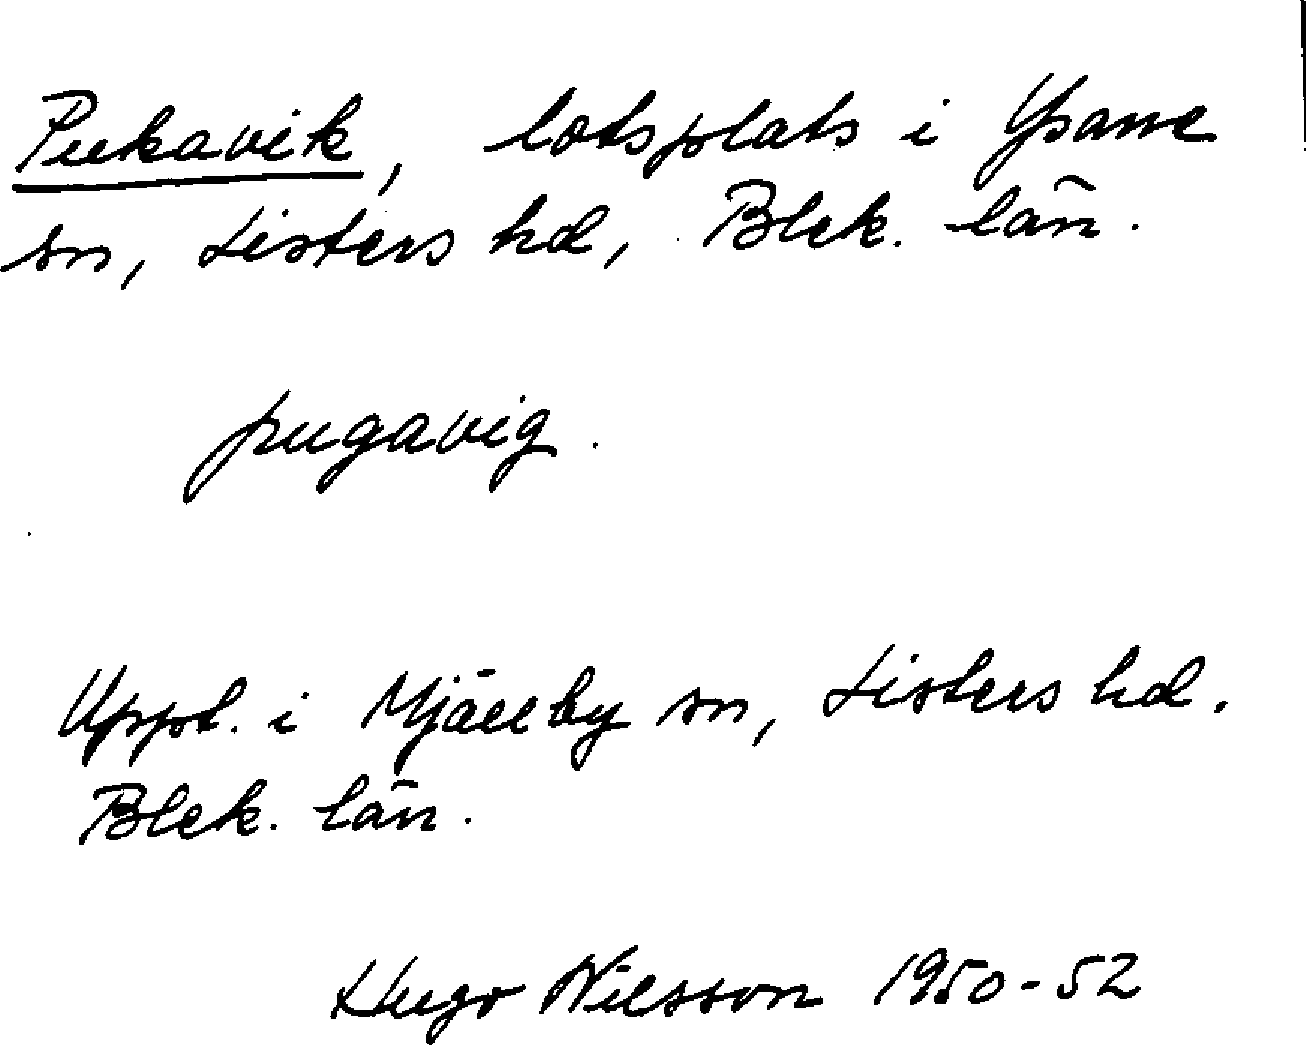 Pukavik, lotsplats i Ysane
sn, Listers hd, Blek. län.
pugavig.
Uppt. i Mjällby sn, Listers hd.
Blek. län.
Hugo Nilsson 1950-52